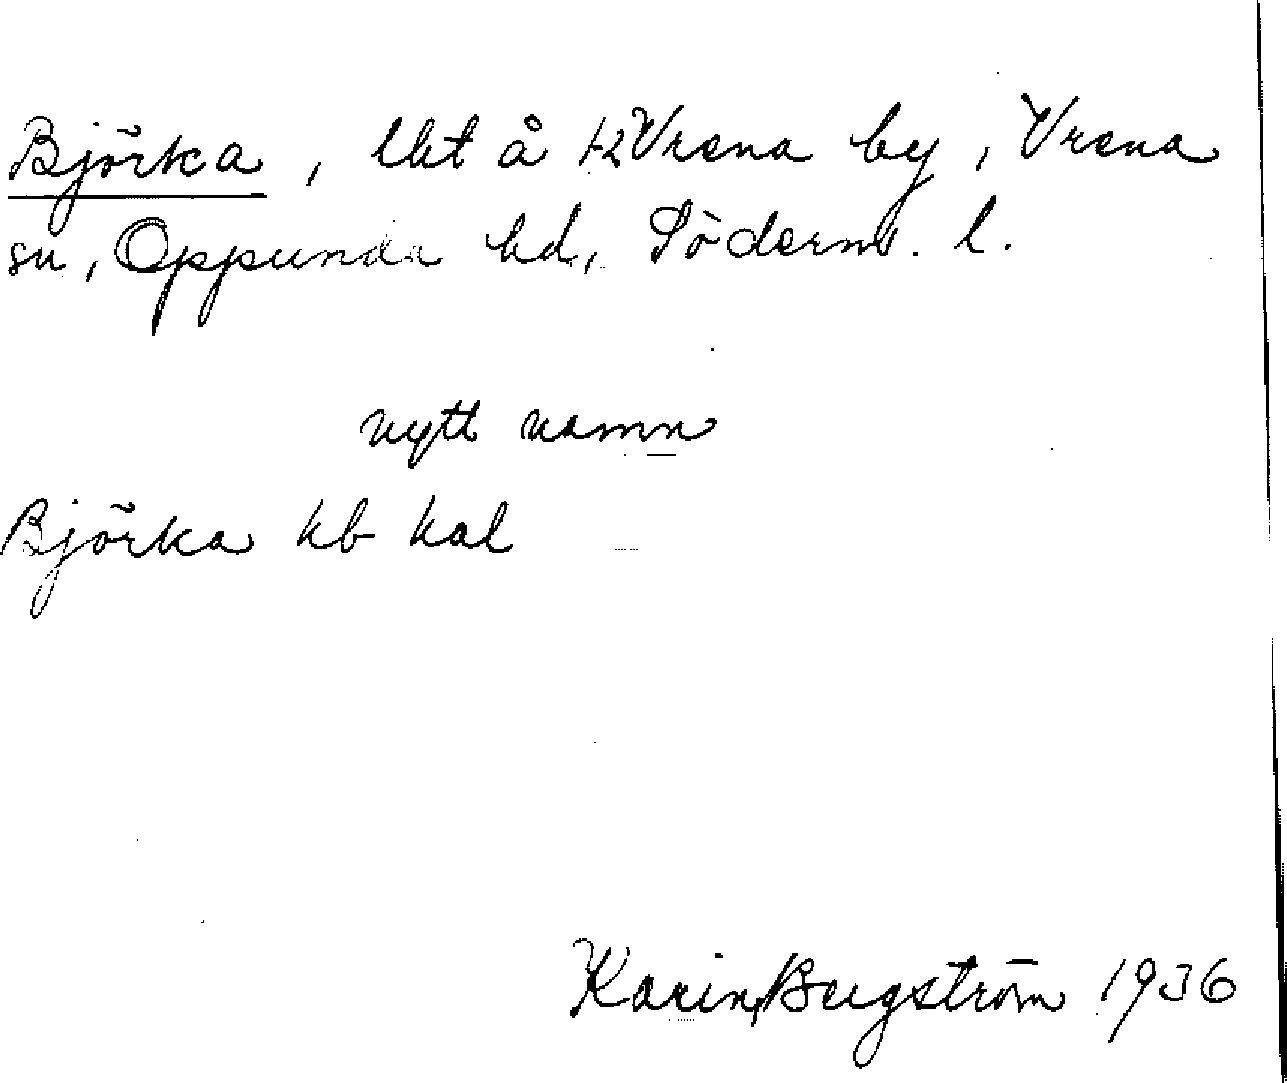 Björka, lht å 12 Vrena by, Vrena
sn, Oppunda hd, Söderm. l.
nytt namn
Björka kb kal
Karin Bergström 1936